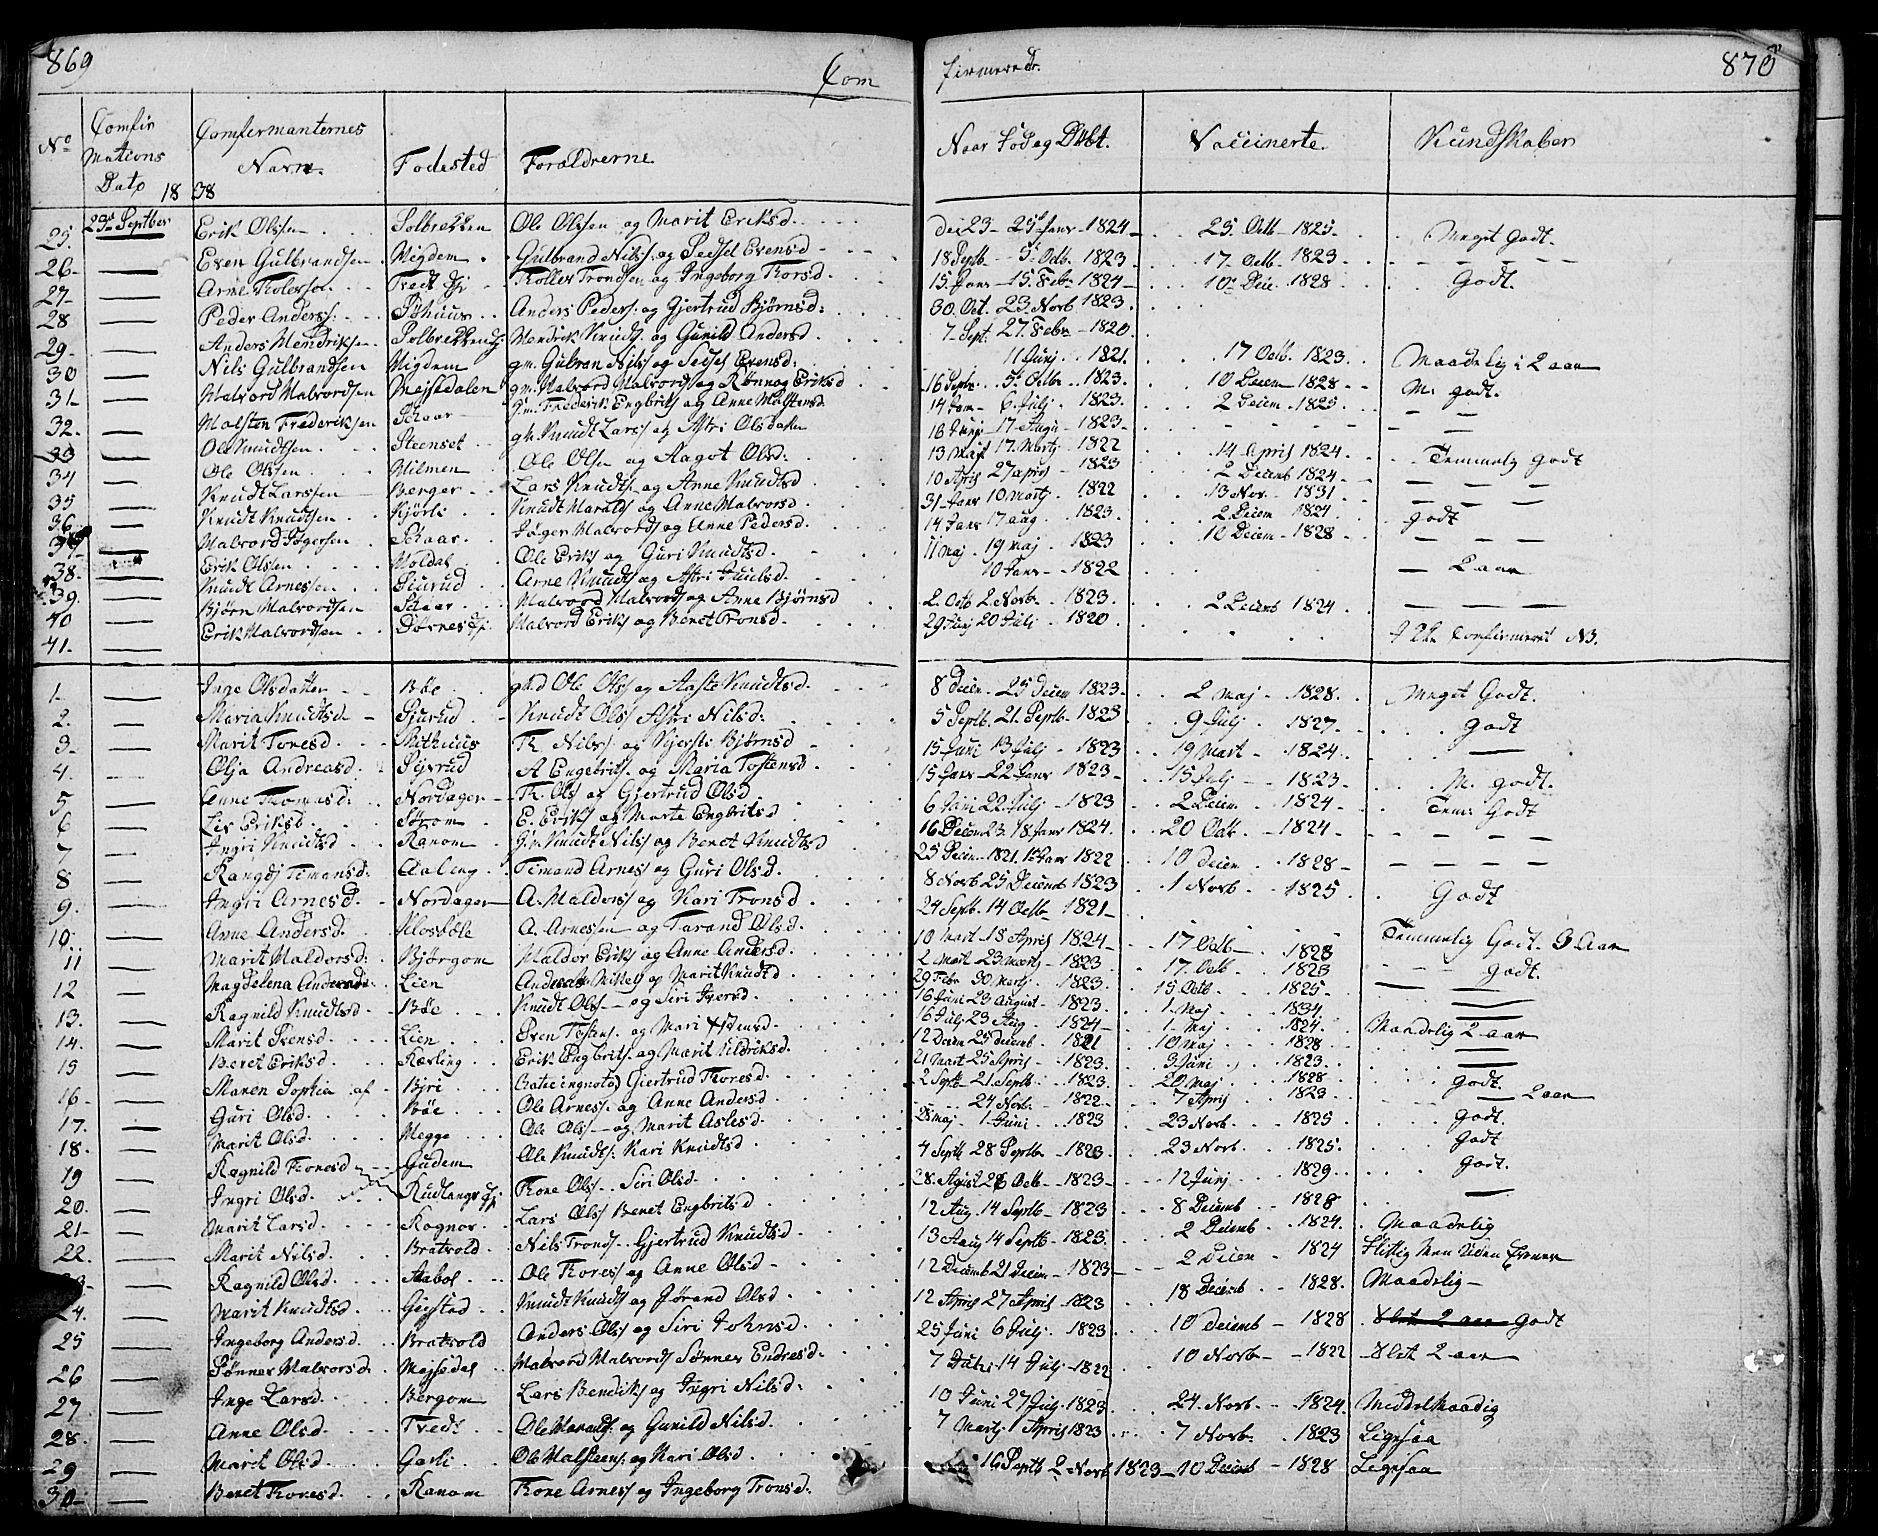 869
Com
firmerede.
870
No
Comfir
Mations
Dato 1838
Comfermanternes
Navn.
Fødested
Forældrerne
Naar Fød og Døbt.
Vaccinerte.
Kundskaber
25. 23de Septber Erik Olssen Solbrekken Ole Olssen og Marit Eriksd. 25 Janr 1824 25. Octb 1825 Meget Godt.
26 Even Gulbrandsen Migdem Gulbrand Nilss og Sedsel Evensd 18 Septb 5 Octb. 1823 17 Octb. 1823
27 Arne Tolerssen Tredt Toller Trondsen og Ingeborg Torsd. 15. Janr 15. Febr 1824 10 Deic. 1828 Godt.
28 Peder Anderss. Søhuus Anders Peders. og Gjertrud Bjørnsd: 30. Oct. 23. Norb 1823
29 Anders Hendriksen Hendrik Knuds. og Gunild Andersd 7 Sept. 27. Febr 1820
30 Nils Gulbrandsen Migdem gm. Gulbran Nils. og Sedsel Evensd: 11 Junj 1821 17 Octb. 1823 Maadelig i 2 aar
31 Halvord Halvordsen gm. Halvord Halvords og Rønnog Eriksd 16 Septr 5 Octbr 1823. 10 Deicem 1828 M. godt.
32. Holsten Frederiksen Schaar gm. Frederik Engbrits og Anne Holstensd 14 Jan 6. Julj 1823. 2 Deicem. 1825
33 Ole Knudtsen Steenset gm. Knudt Larss og Astri Olsdatter 16 Junj 17 Augu 1823
34 Ole Olssen Hilmen Ole Olsen og Aagot Olsd: 13 Majs 17 Martj 1822 14 Aprils 1824 Temmelig Godt
35 Knudt Larssen Berger Lars Knudts. og Anne Knudtsd 10 Aprils 27 april 1823 2 Deicemb 1824
36 Knudt Knudtsen Bjørli Knudt Haralds og Anne Halvorsd 31 Janr 10 Martj 1822 13 Nov. 1831
37 Halvord Jøgersen Schaar Jøger Halvords og Anne Pedersd. 14 Janr 17 aug. 1823. 2 Deicem 1824 godt
38 Erik Olssen Moldal Ole Eriks og Guri Knudtsd. 11 Maj 19 maj 1823 10 Deicem 1828
39. Knudt Arnessen Sjurud Arne Knudts og Astri Juulsd. 10 Janr 1822 2 aar
40 Bjørn Halvordsen Schaar Halvord Halvords og Anne Bjørnsd 2. Octb 2 Norb 1823. 2 Deicemb 1824
41. Erik Halvordsen Halvord Eriks og Beret Tronsd. 29 Junj 20 Juli 1820 Comfirmeret N3.
1 Inge Olsdatter Bøe gmd Ole Olss og Aaste Knudtsd. 8 Deiem. 25 Deiem 1823 2 maj 1828. Meget Godt.
2. Maria Knudtsd Sjurud Knudt Olss Astri Nilsd: 5 Septb. 21. Septb 1823 9 Julj 1827 Godt
3 Marit Toresd. Mithuus Th Nilss og Kjersti Bjørnsd 15 Juni 13 Julj 1823 19 Mart 1824.
4. Olja Andreasd. Sejsrud A Engebrits. og Maria Tostensd 15 Janr 22 Janr 1823 15 Julj 1823 M. godt.
5 Anne Thomasd: Nordager Th. Ols og Gjertrud Olsd 6 Juni 22. Julj 1823 2 Deiem 1824 Tem: Godt
6 Liv Eriksd. Sørom E. Eriks og Marte Engbritsd 16 Deicem 23. 18 Janr 1824. 20 Octb 1824
7 Ingri Knudtsd Ranom Gm Knudt Nilss og Beret Knudtsd 25 Deiem 1821. 1 Janr 1822 10 deiem 1828
8 Rangdj Timansd: Aaling Timand Arness og Guri Olsd. 8 Norb 25 Deicemb 1823 1 Norb 1825 Godt
9. Ingri Arnesd. Nordager A. Haldorss og Kari Tronsd 24 Septb. 14 Octb 1821
10. Anne Andersd. Klosbøle A. Arnessen og Tarand Olsd. 10 Mart 18 Aprils 1824 17 Octb 1828 Temmelig Godt. 3 Aar
11 Marit Haldorsd: Bjørgom Haldor Eriks og Anne Andersd. 2 Mart 23 Martj 1823 17. Octb. 1823 godt.
12 Magdelena Andersd: Lien Anders Mikels og Marit Knudtsd 29 Febr 30 Martj 1823. 15 Octb. 1825
13. Ragnild Knudtsd Bøe Knudt Olss og Siri Iversd. 16 Juni 23 August 1823. 1 Maj 1834
14. Marit Svensd: Lien Sven Tostens. og Mari 16 Julj 23 Aug. 1824 1 Maj 1824. Maadelig 2 aar
15 Beret Eriksd. Kæsling Erik Engbrits. og Marit Hildriksd. 12 Deiem 25 Deicemb 1821 10 Maj 1828
16 Maren Sophia af Bjri Batie ignoto) Giertrud Toresd. 21 Mart 25 Aprils 1823. 3 Juni 1823. godt.
17. Guri Olsd. Bøe Ole Arness. og Anne Andersd. 2 Septb 21. Septb 1823. 20 Maj 1828 2 aar
18. Marit Olsd. Hegge Ole Olss og Marit Aslesd. 24 Norb 1822 7 Aprils 1823 godt.
19 Ragnild Toresd Gudem Ole Knudts. Kari Knudtsd 28 Maj 1 Juni 1823 23 Norb. 1825 Godt
20. Ingri Olsd. Tone Olss. Siri Olsd. 4 Septb 28 Septb 1823 23 Norb. 1825. Godt.
21 Marit Larsd. Rogner. Lars Olss Beret Engbritsd 28. Agust 28 Octb 1823 12 Junj 1829
22. Marit Nilsd. Bratvold Nils Trons. Gjertrud Knudtsd 12 Aug. 14 Septb 1823 8 Deicemb 1828
23 Ragnild Olsd. Aabol Ole Toress og Anne Olsd 13 Aug 14 Septb 1823. 2 Deiemb 1824. Maadelig
24. Marit Knudtsd. Gigstad Knudt Knudts og Jørand Olsd 12 Deicemb 21 Deiem 1823 2 Deien 1824 Flittig Men Uden Evner
25 Ingeborg Andersd. Bratvold Anders Olss og Siri Johnsd. 12 Aprils 27 Aprils 1823 18 Deiemb 1828. Maadelig
26 Sønner Halvorsd: Hejsedal Halvord Halvords Sønner Endresd. 25 Juni 6 Julj. 1823 10 Deiemb 1828 Slet 2 aar godt
27. Inge Larsd. Bergom Lars Bendiks og Ingri Nilsd: 7 14 Julj 1822 10 Norb 1822 Slet 2 aar
28. Anne Olsd. Tredt Ole Harands. og Gunild Nilsd. 10 Juni 27 Julj. 1823 24. Norb 1824. Middelmaadig
29 Marit Olsd. Garli Ole Halsteens. og Kari Olsd. 7 Martj 1 Aprils 1823 7 Norb. 1823 Ligesaa
30 Beret Toresd. Ranom Tore Arness og Ingeborg Tronsd. 16 Septb 2 Norb 1823 10 Deiemb 1828 Ligesaa